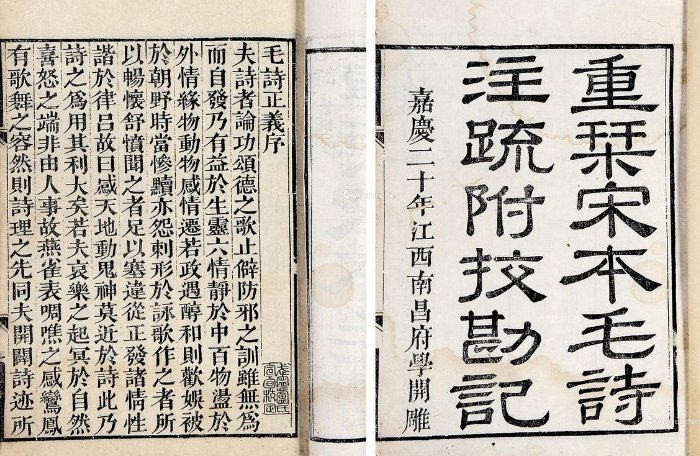 重栞宋本毛詩
注疏附挍勘記
嘉慶二十年江西南昌府學開雕
毛詩正義序
夫詩者論功頌德之歌止僻防邪之訓雖無爲
而自發乃有益於生靈六情靜於中百物盪於
外情緣物動物感情遷若政遇醇和則歡娛被
於朝野時當慘黷亦怨刺形於詠歌作之者所
以暢懷舒憤聞之者足以塞違從正發諸情性
諧於律呂故曰感天地動鬼神莫近於詩此乃
詩之爲用其利大矣若夫哀樂之起冥於自然
喜怒之端非由人事故燕雀表啁噍之感鸞鳳
有歌舞之容然則詩理之先同夫開闢詩迹所